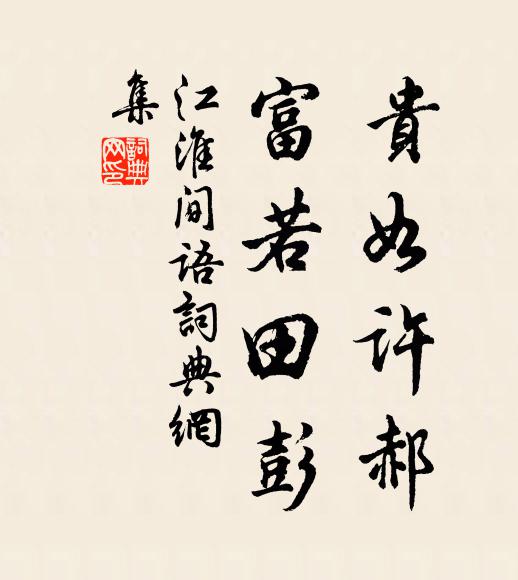 貴如許郝
富若田彭
江淮間語詞典網
集
詞典网印